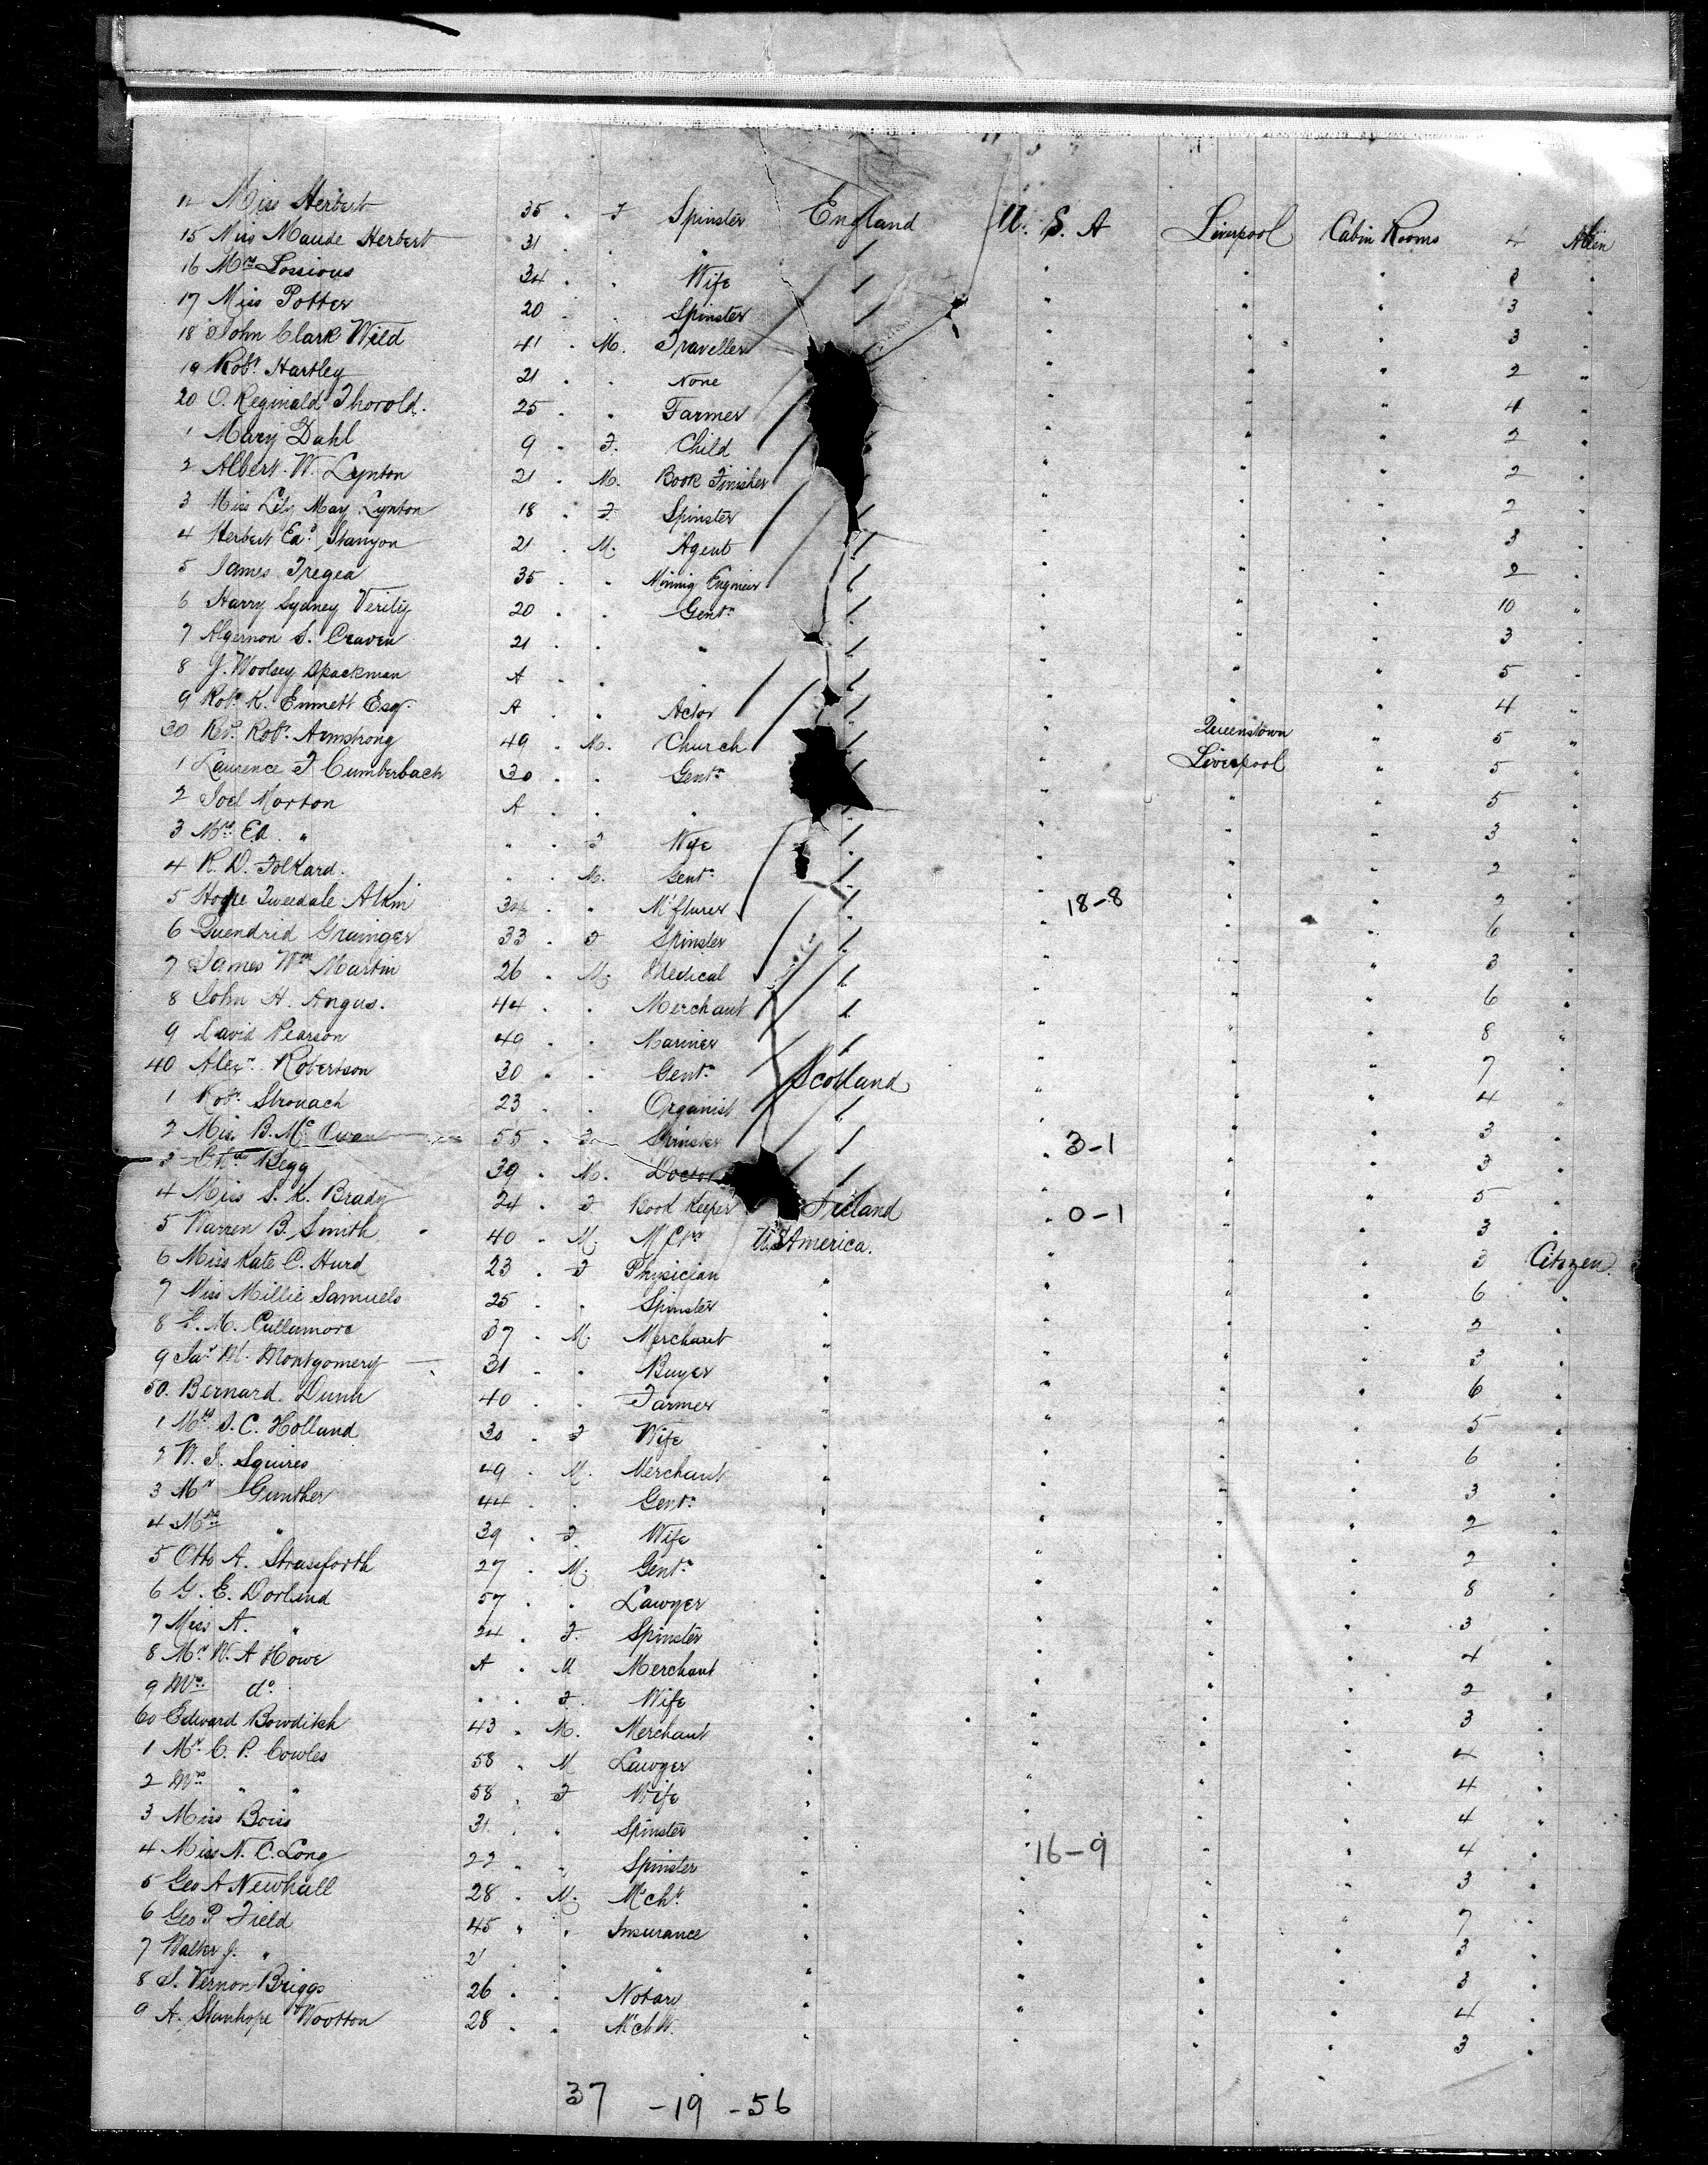 14 Miss Herbert 35 " F Spinster England U. S. A Liverpool Cabin Rooms 4 Alien
15 Miss Maude Herbert 31 " " " " " " " 3 "
16 Mrs Lossious 34 " " Wife " " " 3 "
17 Miss Potter 20 " " Spinster " " " 3 "
18 John Clark Wild 41 " M. Traveller " " " 2 "
19 Robt. Hartley 21 " " None " " " 4 "
20 O. Reginald Thorold. 25 " " Farmer " " " 2 "
1 Mary Dahl 9 " F. Child " " " 2 "
2 Albert. W. Lynton 21 " M. Book Finisher " " " 2 "
3 Miss Lily May Lynton 18 " F. Spinster " " " 3 "
4 Herbert Ed. Stanyon 21 " M. Agent " " " 2 "
5 James Tregea 35 " " Mining Engineer " " " 10 "
6 Harry Sydney Verity 20 " " Gentn " " " 3 "
7 Algernon S. Craven 21 " " " " " " 5 "
8 J. Woolsey Spackman A " " " " " " 4 "
9 Robt. K. Emmett Esq. A " " Actor " Queenstown " 5 "
30 Revd. Robt. Armstrong 49 " M. Church " Liverpool " 5 "
1 Laurence F Cumberbach 30 " " Gentn " " " 5 "
2 Joel Morton A " " " " " " 3 "
3 Mrs Ed. " " " F Wife " " " 2 "
4 R. D. Folkard. " " M. Gentn " " " 2 "
5 Tweedale Atkin 34 " " M'fturer 18-8 " " 6 "
6 Quendrid Grainger 33 " F Spinster " " " 3 "
7 James Wm Martin 26 " M. Medical " " " 6 "
8 John H. Angus. 44 " " Merchant " " " 8 "
9 David Pearson 49 " " Mariner " " " 7 "
40 Alexr. Robertson 30 " " Gentn Scotland " " " 4 "
1 Robt. Stronach 23 " " Organist " " " 3 "
2 Miss B. Mc Owan 55 " F Spinster 3-1 " " 3 "
3 Begg 39 " M. Doctor " " " 5 "
4 Miss S. K. Brady 24 " F Book Keeper Ireland 0-1 " " 3 "
5 Warren B. Smith 40 " M. M'f'rer U.S America. " " " 3 Citizen
6 Miss Kate C. Hurd 23 " F Physician " " " " 6 "
7 Miss Millie Samuels 25 " " Spinster " " " " 2 "
8 G. M. Cullumore 37 " M. Merchant " " " " 3 "
9 Jas M. Montgomery 31 " " Buyer " " " " 6 "
50. Bernard Dunn 40 " " Farmer " " " " 5 "
1 Mrs S. C. Holland 30 " F Wife " " " " 6 "
2 W. J. Squires 49 " M. Merchant " " " " 3 "
3 Mr Gunther 44 " " Gentn " " " " 2 "
4 Mrs " 39 " F. Wife " " " " 2 "
5 Otto A. Strassforth 27 " M. Gentn " " " " 8 "
6 G. E. Dorlind 57 " " Lawyer " " " " 3 "
7 Miss A. " 24 " F. Spinster " " " " 4 "
8 Mr W. A Howe A " M Merchant " " " " 2 "
9 Mrs do. " " F. Wife " " " " 3 "
60 Edward Bowditch 43 " M. Merchant " " " " 4 "
1 Mr. C. P. Cowles 58 " M Lawyer " " " " 4 "
2 Mrs " " 58 " F Wife " " " " 4 "
3 Miss Boiss 31 " " Spinster " " " " 4 "
4 Miss N. C. Long 22 " " Spinster " 16-9 " " 3 "
5 Geo A Newhall 28 " M. M'cht " " " " 7 "
6 Geo P. Field 45 " " Insurance " " " " 3 "
7 Walter J. " 21 " " " " " " " 3 "
8 S. Vernon Briggs 26 " " Notary " " " " 4 "
9 A. Stanhope Wootton 28 " " M'cht. " " " " 3 "
37 -19 -56